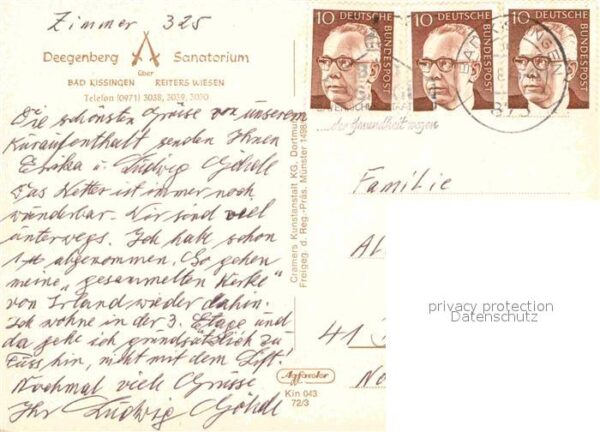 Zimmer 325
Deegenberg Sanatorium
über
BAD KISSINGEN REITERSWIESEN
Telefon (0971) 3038, 3039, 3020
Die schönsten Grüsse von unserem
Kuraufenthalt senden Ihnen
Erika u. Ludwig Göhdl
Das Wetter ist immer noch
wunderbar. Wir sind viel
unterwegs. Ich habe schon
abgenommen. So gehen
meine "gesammelten Werke"
von Irland wieder dahin.
Ich wohne in der 3. Etage und
da gehe ich grundsätzlich zu
Fuss hin, nicht mit dem Lift!
Nochmal viele Grüsse
Ihr Ludwig Göhdl
Cramers Kunstanstalt KG, Dortmund
Freigeg. d. Reg.-Präs. Münster 1498
Agfacolor
Kin 043
72/3
10 DEUTSCHE BUNDESPOST
10 DEUTSCHE BUNDESPOST
10 DEUTSCHE BUNDESPOST
BAD KISSINGEN
873
der Gesundheit wegen
Familie
41
privacy protection
Datenschutz